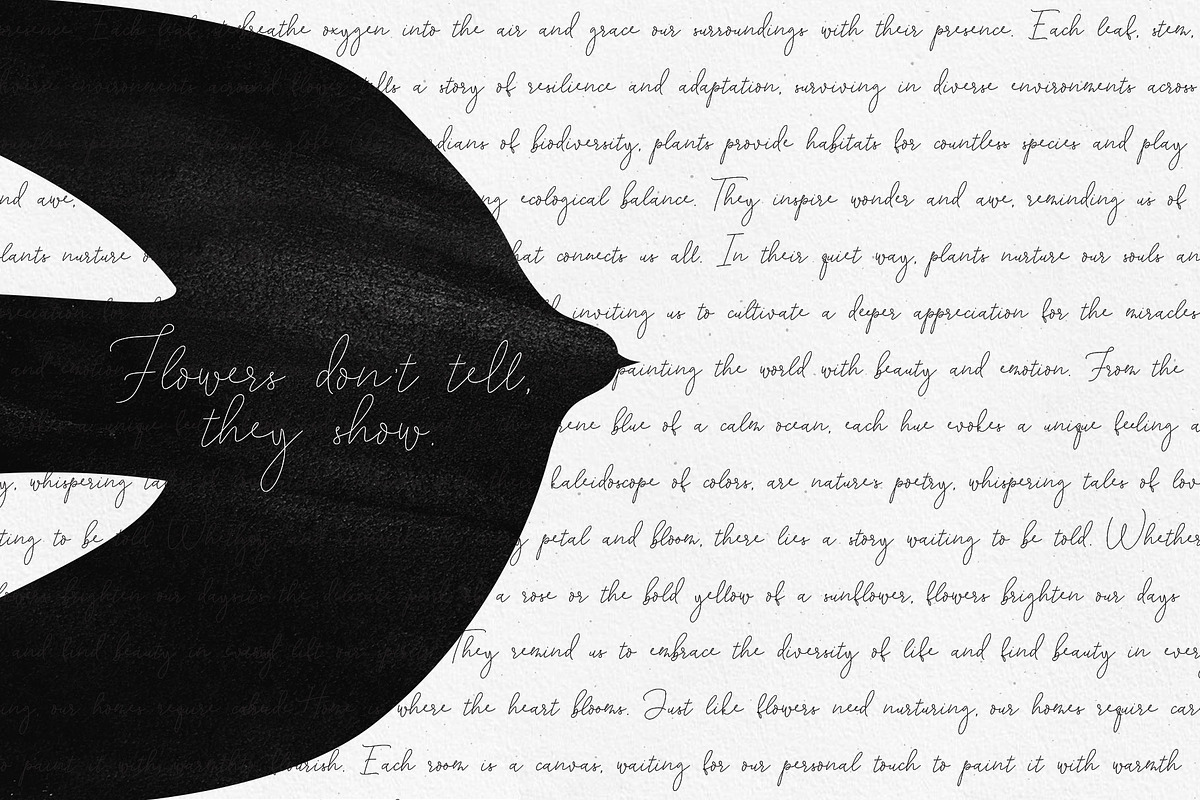 breathe oxygen into the air and grace our surroundings with their presence. Each leaf, stem,
a story of resilience and adaptation, surviving in diverse environments across
of biodiversity, plants provide habitats for countless species and play
nd awe, ng ecological balance. They inspire wonder and awe, reminding us of
lants nurture hat connects us all. In their quiet way, plants nurture our souls an
inviting us to cultivate a deeper appreciation for the miracles
painting the world with beauty and emotion. From the
Flowers don't tell,
they show.
rene blue of a calm ocean, each hue evokes a unique feeling a
y, whispering ta kaleidoscope of colors, are nature's poetry, whispering tales of lov
ting to be told. Wh y petal and bloom, there lies a story waiting to be told. Whether
brighten our days a rose or the bold yellow of a sunflower, flowers brighten our days
and find beauty in every They remind us to embrace the diversity of life and find beauty in ever
our homes require where the heart blooms. Just like flowers need nurturing, our homes require car
paint it with ourish. Each room is a canvas, waiting for our personal touch to paint it with warmth